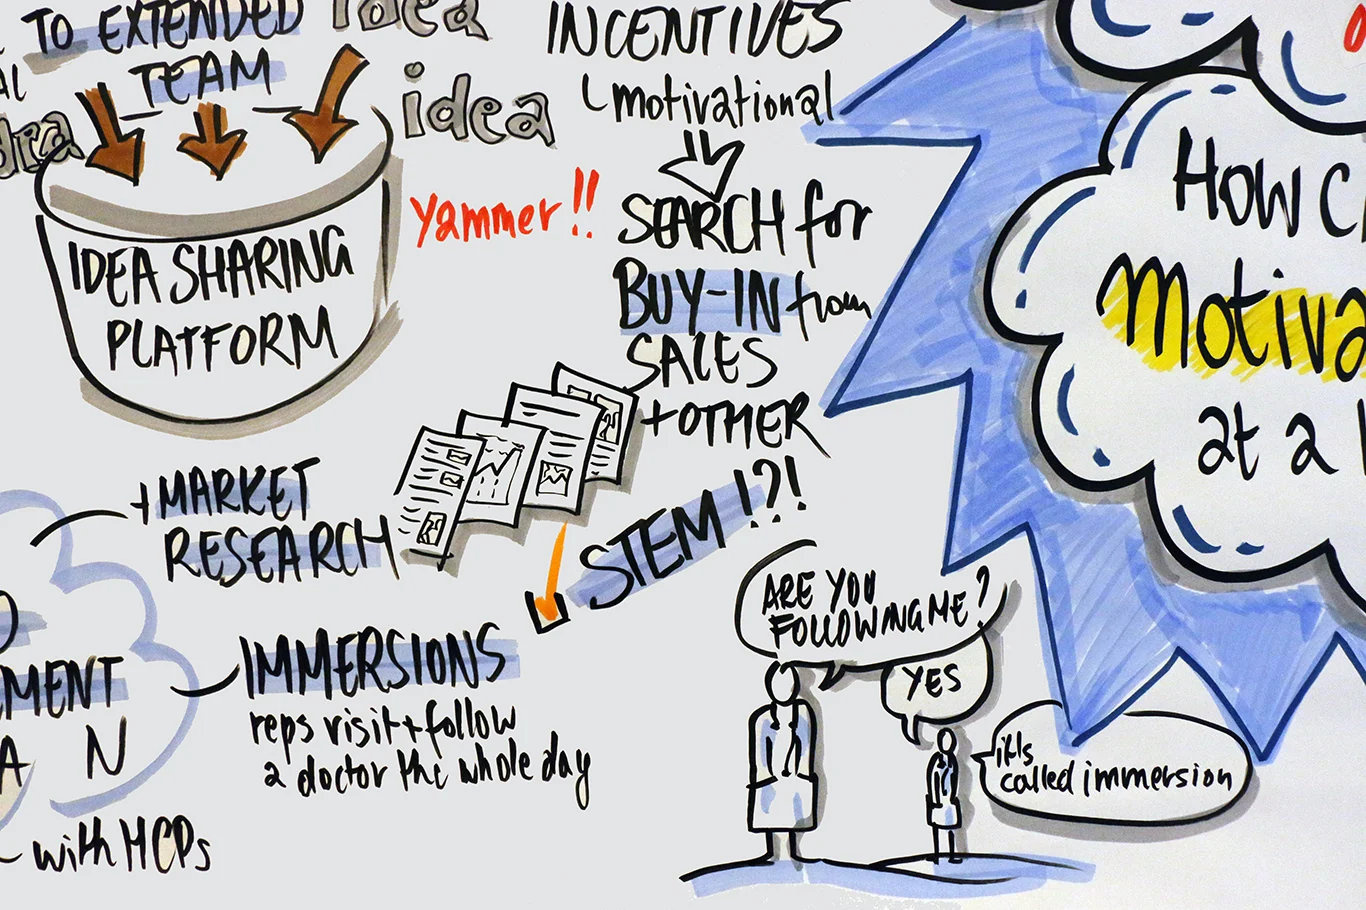 TO EXTENDED
TEAM
idea
idea
IDEA SHARING
PLATFORM
Yammer!!
INCENTIVES
motivational
SEARCH for
BUY-IN from
SALES
+ OTHER
STEM!?!
+ MARKET
RESEARCH
IMMERSIONS
reps visit + follow
a doctor the whole day
MENT
AN
with HCPs
ARE YOU
FOLLOWING ME?
YES
it's
called immersion
HOW C
Motiva
at a